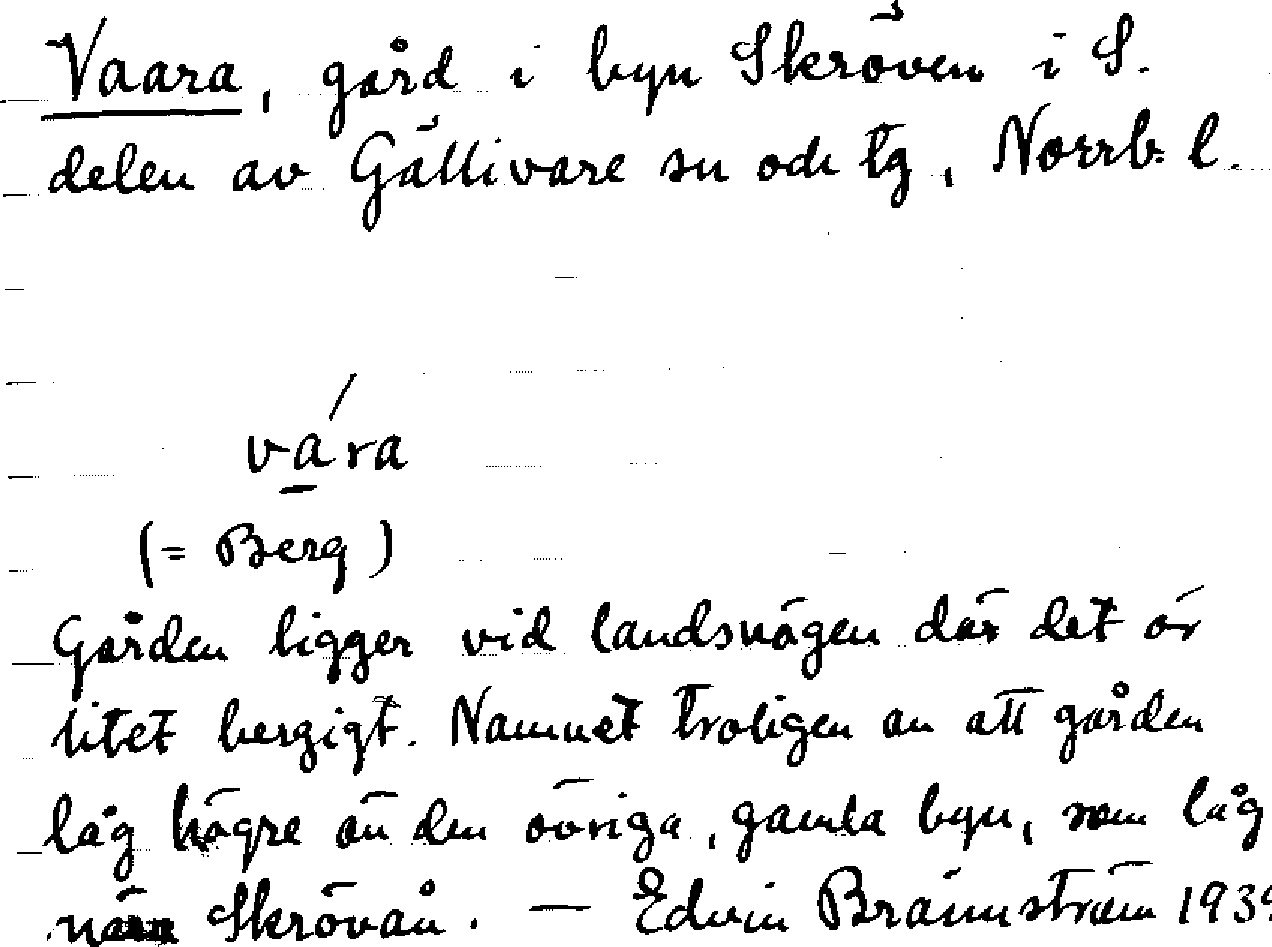 Vaara, gård i byn Skröven i S.
delen av Gällivare sn och tg, Norrb. l.
vára
(= Berg)
Gården ligger vid landsvägen där det är
litet bergigt. Namnet troligen av att gården
låg högre än den övriga, gamla byn, som låg
nära Skrövån. — Edvin Brännström